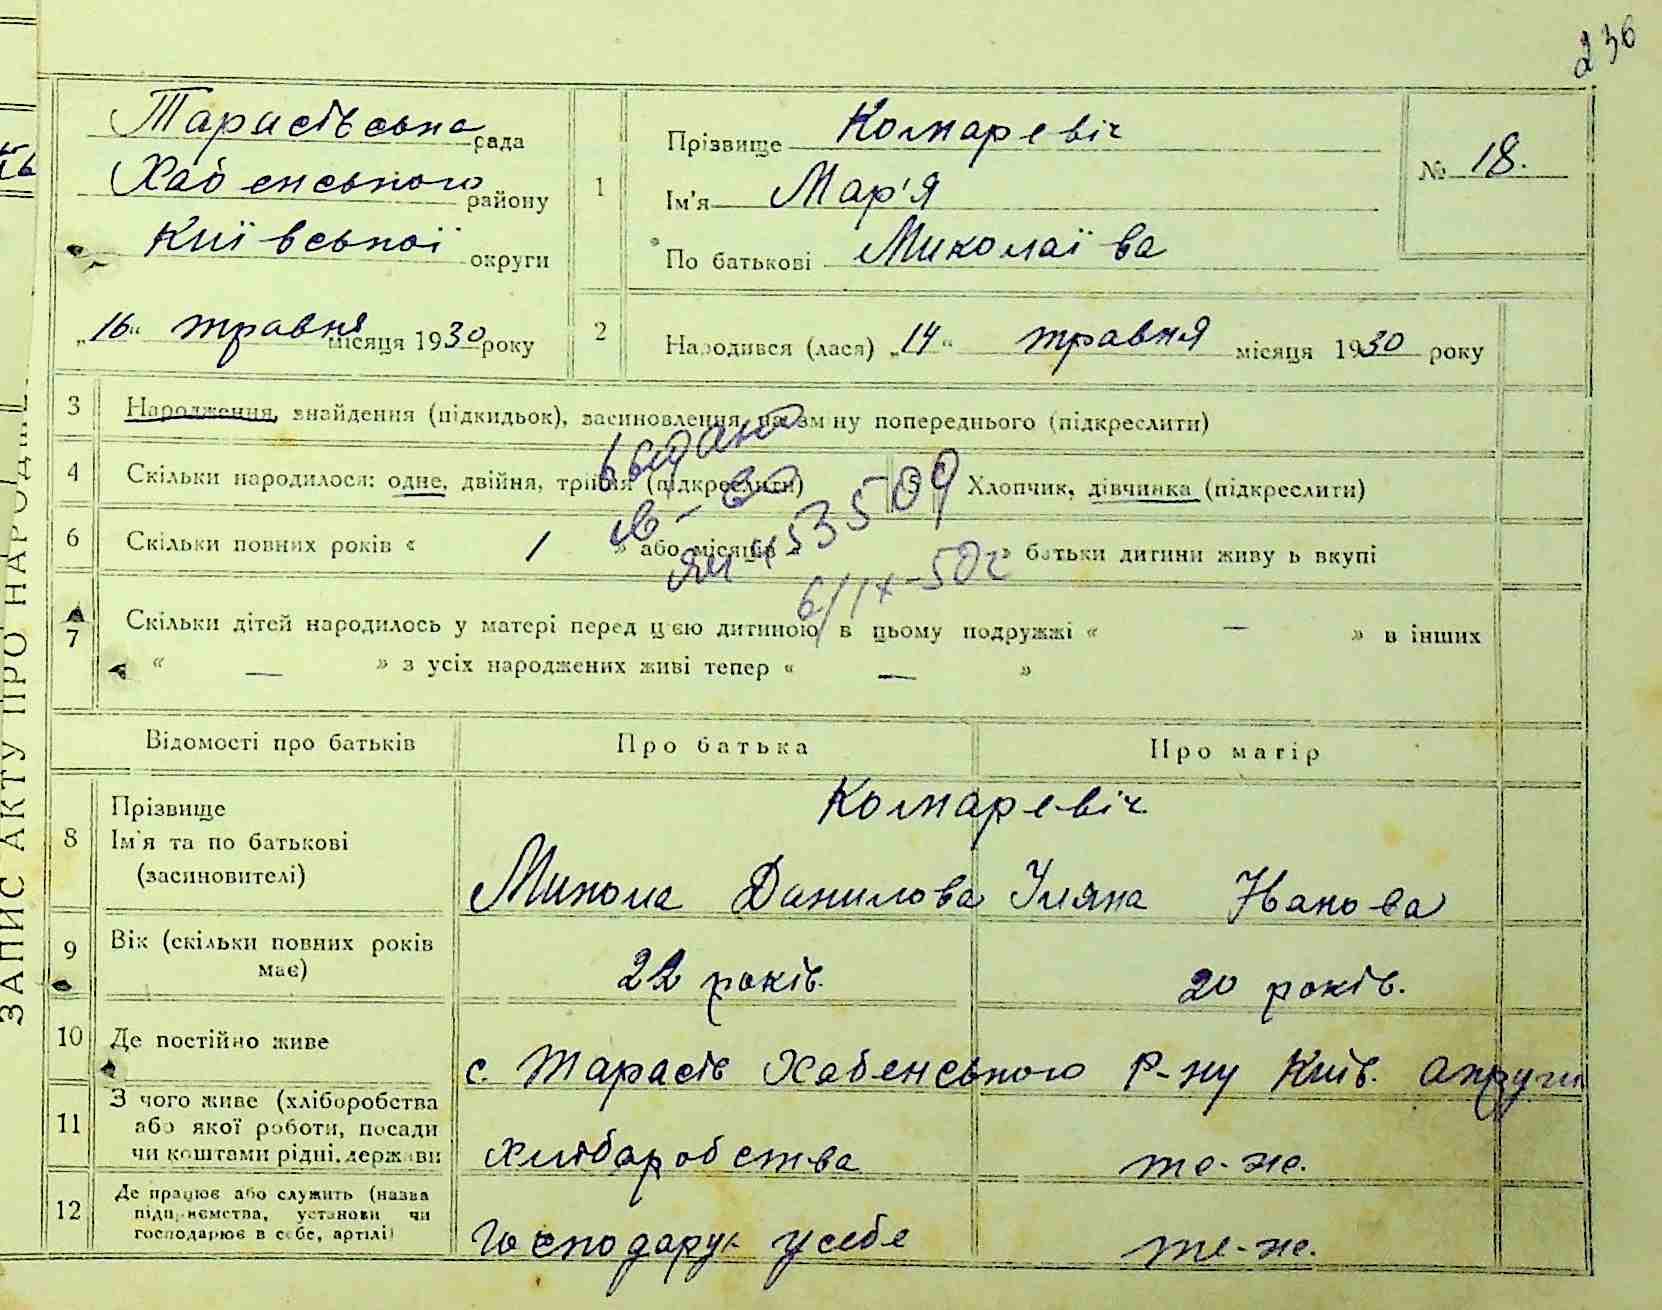 236
Тарасівська рада
Хабенського району
Київської округи
„16“ травня місяця 1930 року
1
Прізвище Комаревіч
Ім'я Мар'я
По батькові Миколаїва
№ 18.
2 Народився (лася) „14“ травня місяця 1930 року
3 Народження, знайдення (підкидьок), засиновлення, на зміну попереднього (підкреслити)
4 Скільки народилося: одне, двійня, трійня (підкреслити) 5 Хлопчик, дівчинка (підкреслити)
6 Скільки повних років « 1 » або місяців « » батьки дитини живуть вкупі
выдано
св-во
ЯМ 53509
6/IX-50г
7 Скільки дітей народилось у матері перед цією дитиною в цьому подружжі « — » в інших
« — » з усіх народжених живі тепер « — »
Відомості про батьків Про батька Про матір
8 Прізвище Комаревіч
Ім'я та по батькові
(засиновителі) Микола Данилова Уляна Іванова
9 Вік (скільки повних років
має) 22 років. 20 років.
10 Де постійно живе с. Тарасів Хабенського р-ну Київ. Округи
11 З чого живе (хліборобства
або якої роботи, посади
чи коштами рідні, держави хліборобства те-же.
12 Де працює або служить (назва
підприємства, установи чи
господарює в себе, артілі) Господарує у себе те-же.
ЗАПИС АКТУ ПРО НАРОДЖ